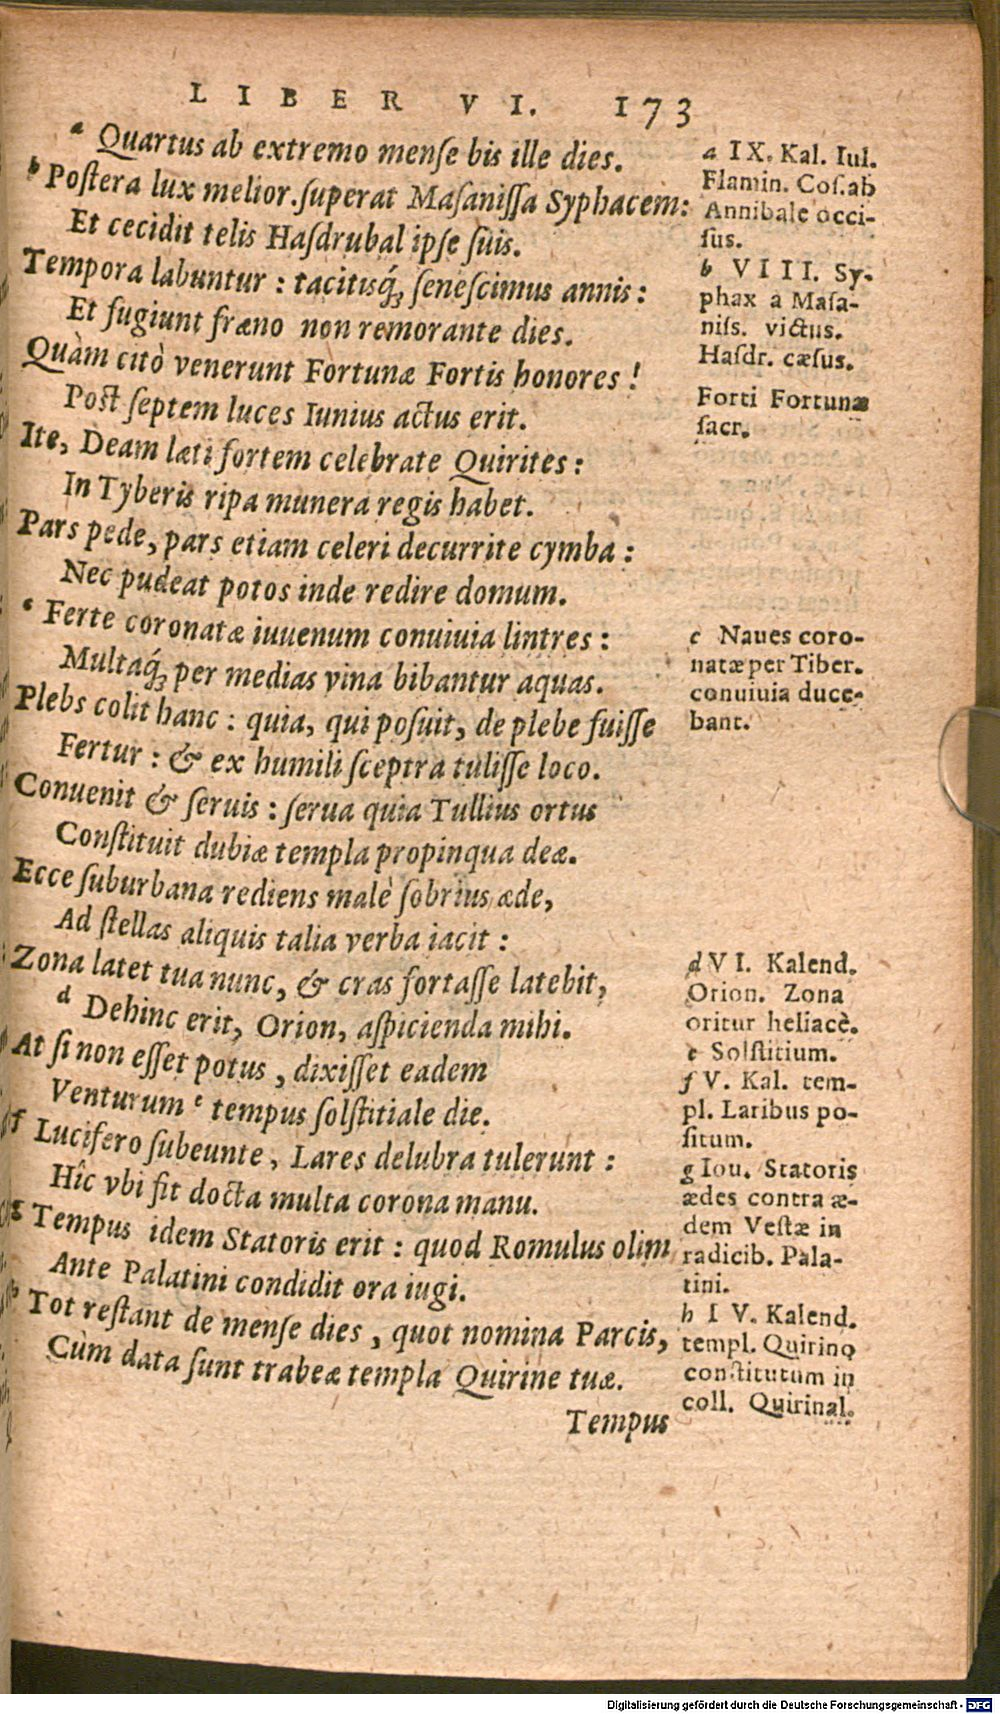 LIBER VI. 173
a Quartus ab extremo menſe bis ille dies.
b Poſtera lux melior. ſuperat Maſaniſſa Syphacem:
Et cecidit telis Haſdrubal ipſe ſuis.
Tempora labuntur : tacitisq́; ſeneſcimus annis :
Et fugiunt fræno non remorante dies.
Quàm citò venerunt Fortunæ Fortis honores !
Poſt ſeptem luces Iunius actus erit.
Ite, Deam læti fortem celebrate Quirites :
In Tyberis ripa munera regis habet.
Pars pede, pars etiam celeri decurrite cymba :
Nec pudeat potos inde redire domum.
c Ferte coronatæ iuuenum conuiuia lintres :
Multaq́; per medias vina bibantur aquas.
Plebs colit hanc : quia, qui poſuit, de plebe fuiſſe
Fertur : & ex humili ſceptra tuliſſe loco.
Conuenit & ſeruis : ſerua quia Tullius ortus
Conſtituit dubiæ templa propinqua deæ.
Ecce ſuburbana rediens malè ſobrius æde,
Ad ſtellas aliquis talia verba iacit :
Zona latet tua nunc, & cras fortaſſe latebit,
d Dehinc erit, Orion, aſpicienda mihi.
At ſi non eſſet potus, dixiſſet eadem
Venturum e tempus ſolſtitiale die.
f Lucifero ſubeunte, Lares delubra tulerunt :
Hîc vbi fit docta multa corona manu.
g Tempus idem Statoris erit : quod Romulus olim
Ante Palatini condidit ora iugi.
h Tot reſtant de menſe dies, quot nomina Parcis,
Cùm data ſunt trabeæ templa Quirine tuæ.
Tempus
a IX. Kal. Iul.
Flamin. Coſ. ab
Annibale occi-
ſus.
b VIII. Sy-
phax a Maſa-
niſſ. victus.
Haſdr. cæſus.
Forti Fortunæ
ſacr.
c Naues coro-
natæ per Tiber.
conuiuia duce-
bant.
d VI. Kalend.
Orion. Zona
oritur heliacè.
e Solſtitium.
f V. Kal. tem-
pl. Laribus po-
ſitum.
g Iou. Statoris
ædes contra æ-
dem Veſtæ in
radicib. Pala-
tini.
h IV. Kalend.
templ. Quirino
conſtitutum in
coll. Quirinal.
Digitalisierung gefördert durch die Deutsche Forschungsgemeinschaft - DFG